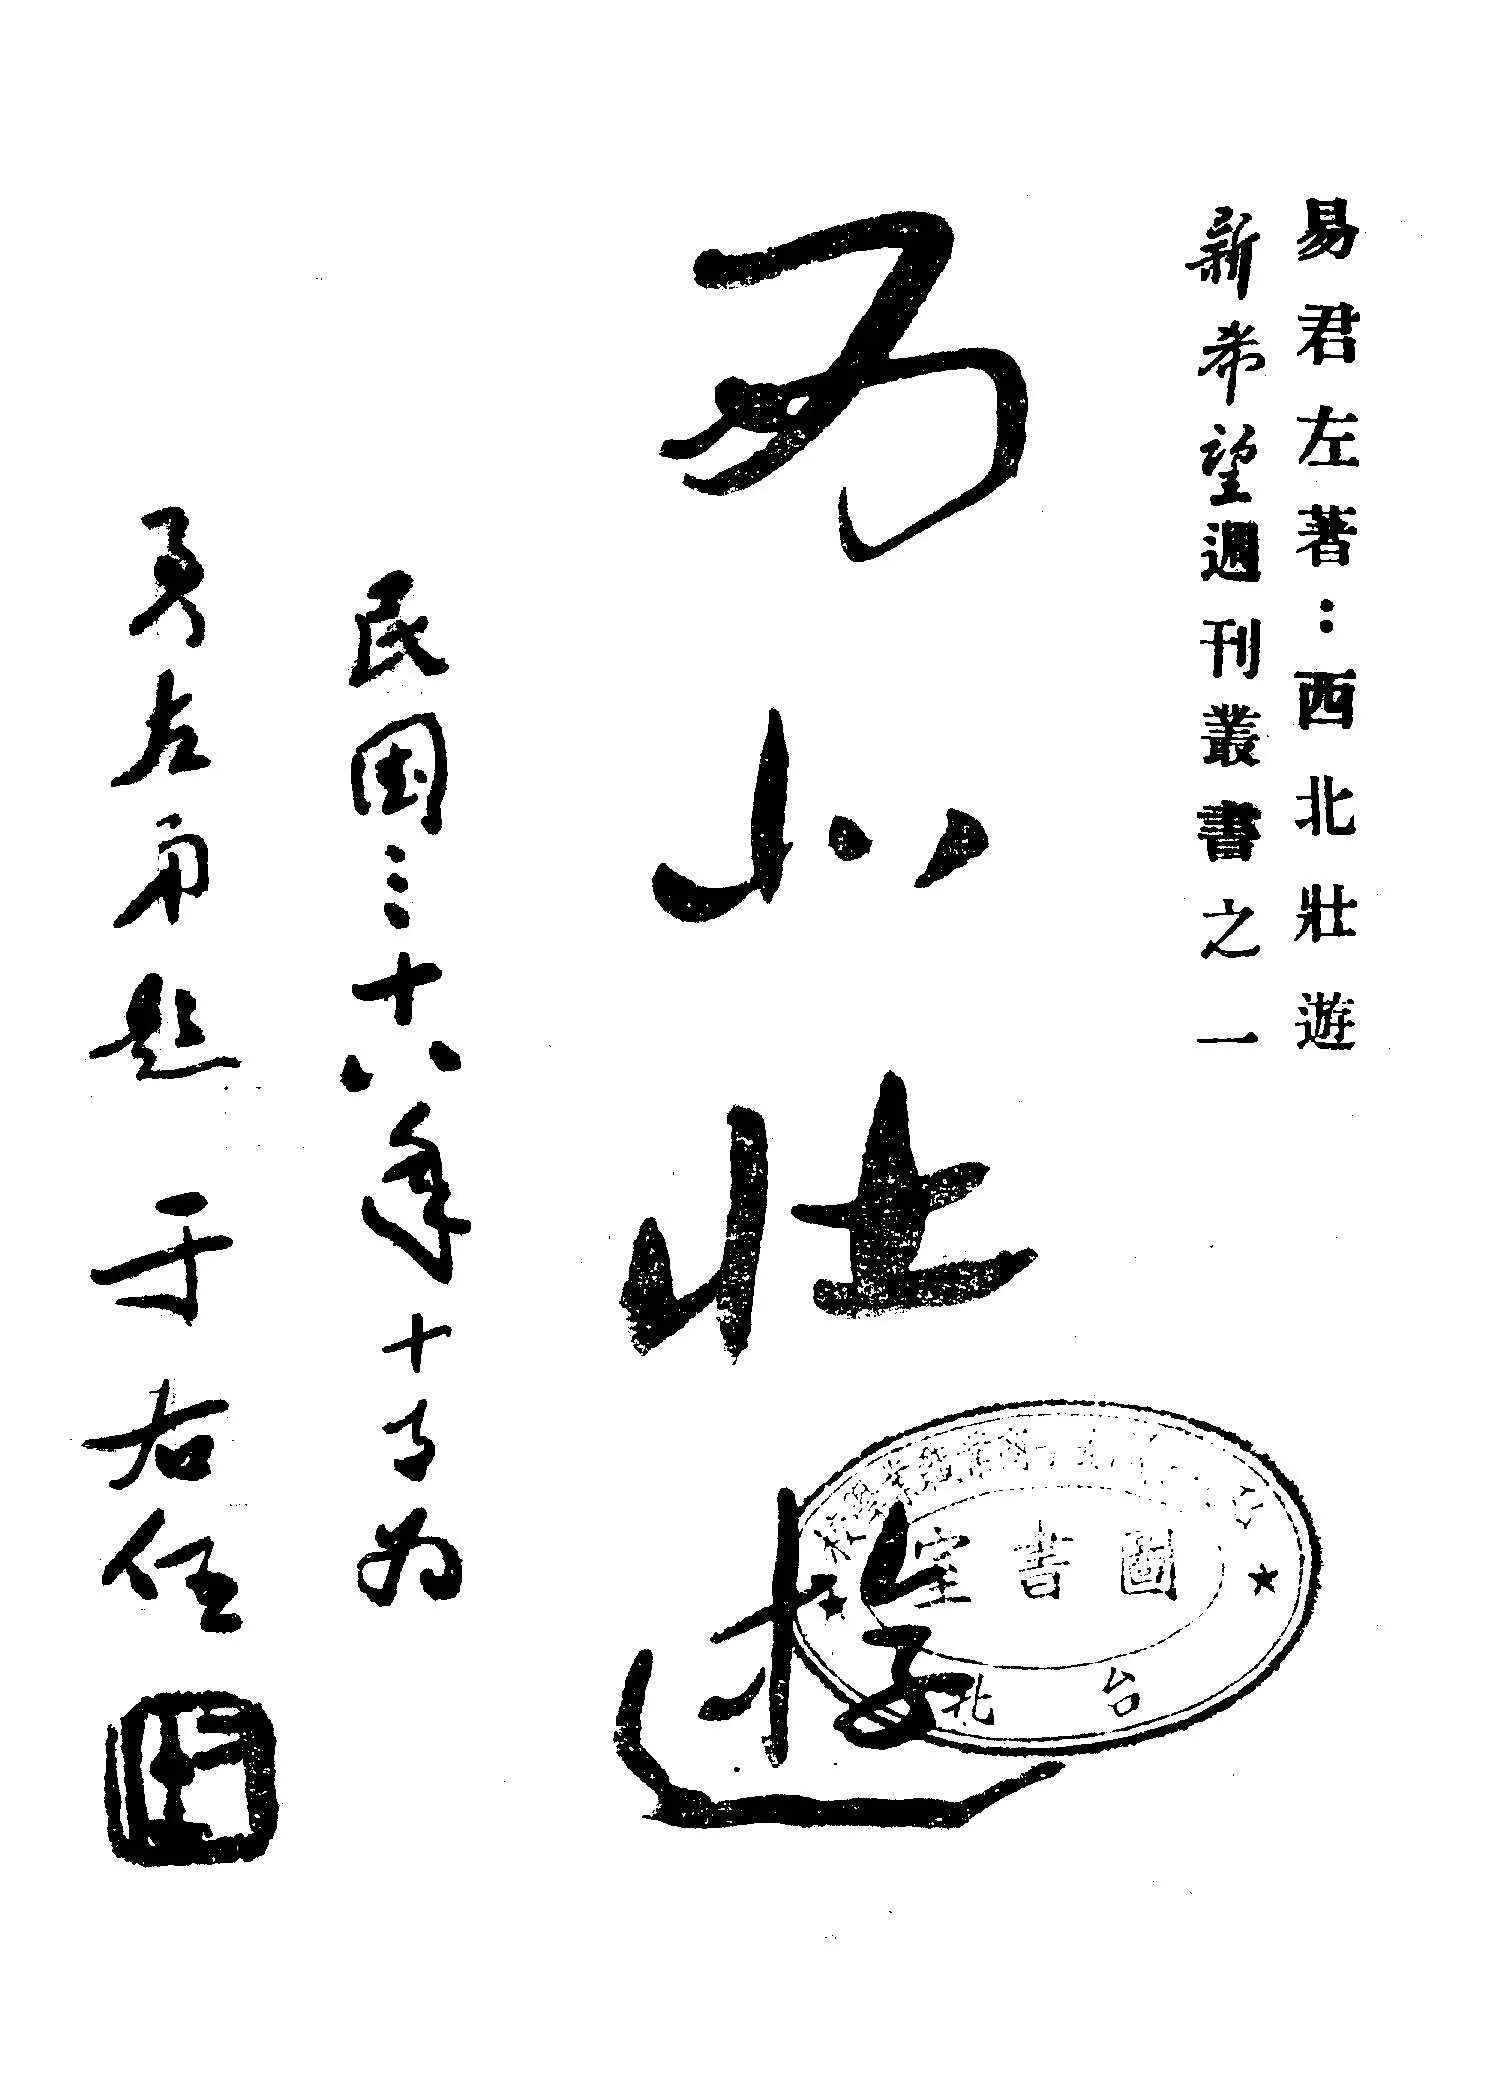 易君左著：西北壯遊
新希望週刊叢書之一
西北壯遊
民国三十八年十月為
君左弟題 于右任
圖書室
台北